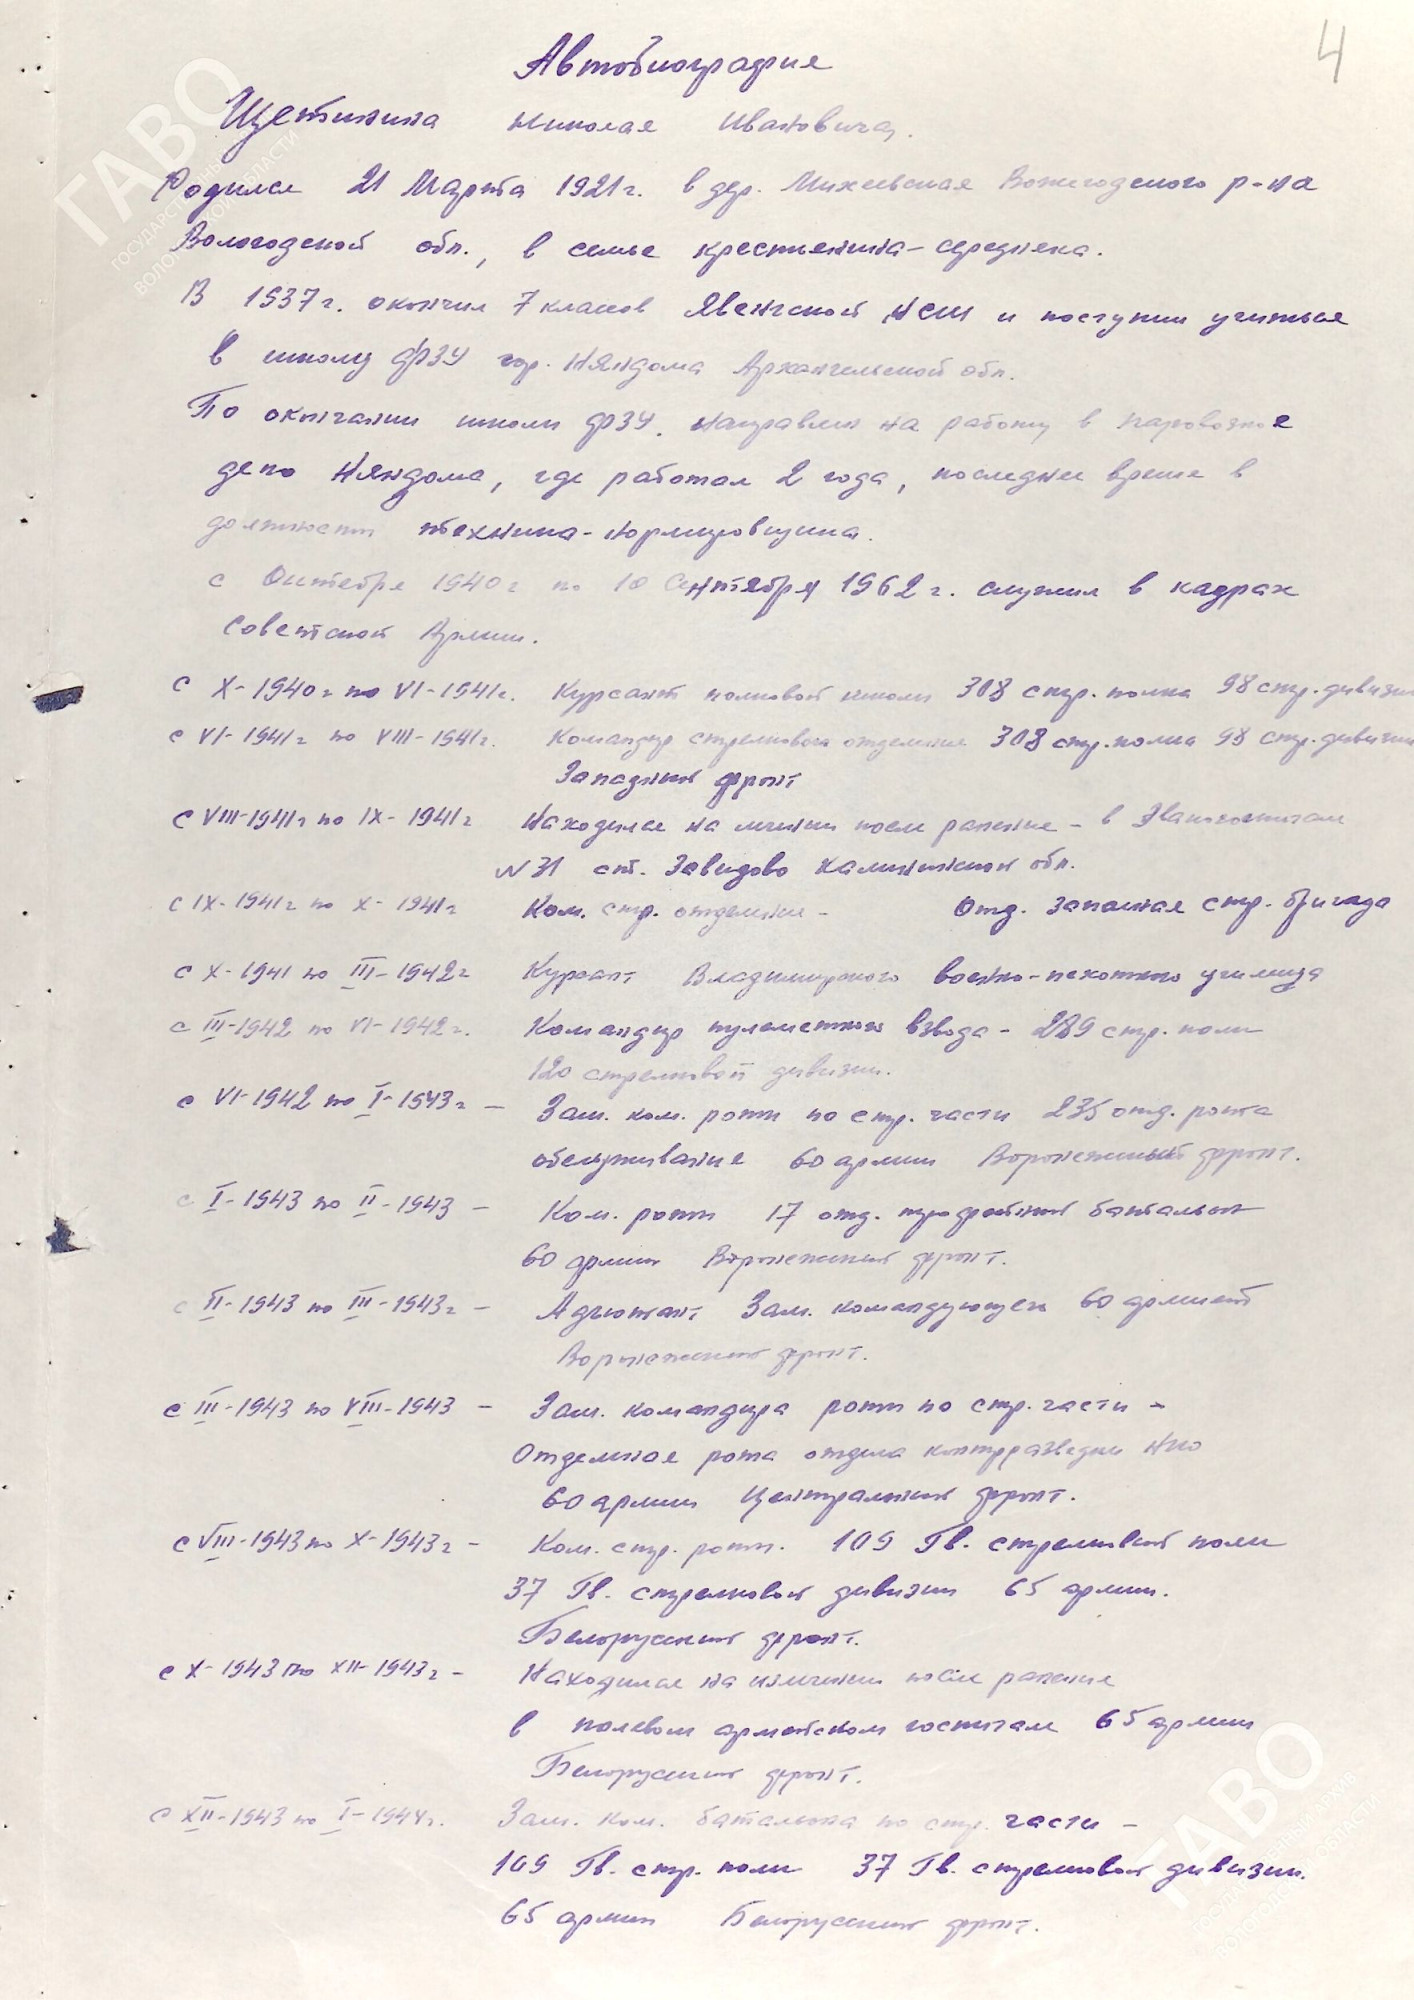 4
Автобиография
Щетинина Николая Ивановича.
Родился 21 Марта 1921 г. в дер. Михеевская Вожегодского р-на
Вологодской обл., в семье крестьянина-середняка.
В 1937 г. окончил 7 классов Явенгской НСШ и поступил учиться
в школу ФЗУ гор. Няндома Архангельской обл.
По окончании школы ФЗУ. направлен на работу в паровозное
депо Няндома, где работал 2 года, последнее время в
должности техника-нормировщика.
с Октября 1940 г по 10 Сентября 1962 г. служил в кадрах
Советской Армии.
с X-1940 г по VI-1941 г. Курсант полковой школы 308 стр. полка 98 стр. дивизии
с VI-1941 г по VIII-1941 г. Командир стрелкового отделения 308 стр. полка 98 стр. дивизии
Западный фронт
с VIII-1941 г по IX-1941 г Находился на лечении после ранения - в Эвакогоспитале
N 31 ст. Завидово Калининской обл.
с IX-1941 г по X-1941 г Ком. стр. отделения - Отд. запасная стр. бригада
с X-1941 по III-1942 г Курсант Владимирского военно-пехотного училища
с III-1942 по VI-1942 г. Командир пулеметного взвода - 289 стр. полк
120 стрелковой дивизии.
с VI-1942 по I-1943 г - Зам. ком. роты по стр. части 235 отд. рота
обслуживания 60 армии Воронежский фронт.
с I-1943 по II-1943 - Ком. роты 17 отд. штрафной батальон
60 армии Воронежский фронт.
с II-1943 по III-1943 г - Адъютант Зам. командующего 60 армией
Воронежский фронт.
с III-1943 по VIII-1943 - Зам. командира роты по стр. части -
Отдельная рота отдела контрразведки НКО
60 армии Центральный фронт.
с VIII-1943 по X-1943 г - Ком. стр. роты. 109 Гв. стрелковый полк
37 Гв. стрелковой дивизии 65 армии.
Белорусский фронт.
с X-1943 по XII-1943 г - Находился на излечении после ранения
в полевом армейском госпитале 65 армии
Белорусский фронт.
с XII-1943 по I-1944 г. Зам. ком. батальона по стр. части -
109 Гв. стр. полк 37 Гв. стрелковой дивизии.
65 армии Белорусский фронт.
ГАВО
ГАВО